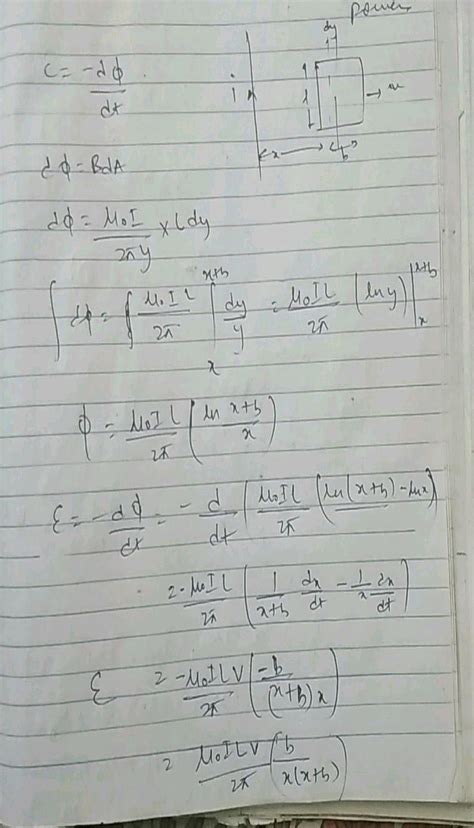 power
dy
ε = -dφ/dt
i
l
v
x
b
dφ = BdA
dφ = μ₀I/2πy × l dy
∫dφ = ∫ μ₀Il/2π ∫ₓ^(x+b) dy/y = μ₀Il/2π (ln y)|ₓ^(x+b)
φ = μ₀Il/2π (ln x+b/x)
ε = -dφ/dt = -d/dt (μ₀Il/2π (ln(x+b) - lnx)
= -μ₀Il/2π (1/x+b dx/dt - 1/x dx/dt)
ε = -μ₀Ilv/2π (-b/(x+b)x)
= μ₀Ilv/2π (b/x(x+b))